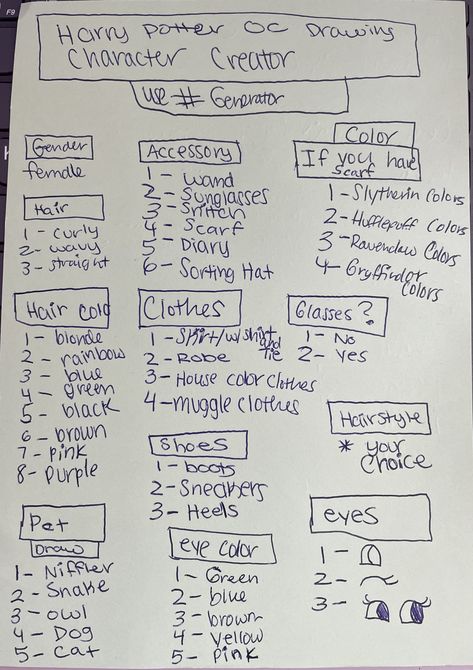 F9
Harry Potter OC Drawing
Character Creator
use # Generator
Gender
female
Hair
1 - curly
2 - wavy
3 - straight
Hair Colo
1 - blonde
2 - rainbow
3 - blue
4 - green
5 - black
6 - brown
7 - pink
8 - purple
Pet
Draw
1 - Niffler
2 - Snake
3 - owl
4 - Dog
5 - cat
Accessory
1 - wand
2 - Sunglasses
3 - Snitch
4 - Scarf
5 - Diary
6 - Sorting Hat
Clothes
1 - Skirt/w/shirt and tie
2 - Robe
3 - House color clothes
4 - muggle clothes
Shoes
1 - boots
2 - Sneakers
3 - Heels
eye color
1 - Green
2 - blue
3 - brown
4 - yellow
5 - pink
Color
If you have
scarf
1 - Slytherin Colors
2 - Hufflepuff Colors
3 - Ravenclaw Colors
4 - Gryffindor Colors
Glasses?
1 - No
2 - Yes
Hairstyle
* your
choice
eyes
1 -
2 -
3 -